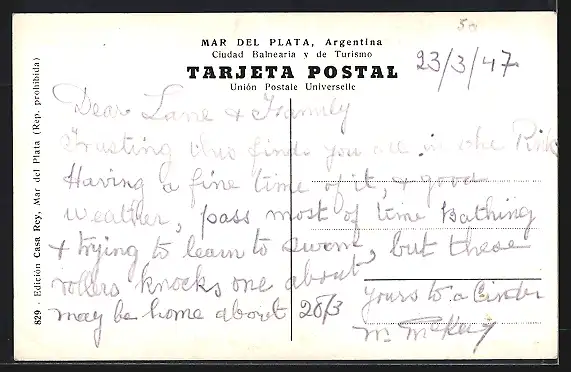 50
MAR DEL PLATA, Argentina
Ciudad Balnearia y de Turismo
TARJETA POSTAL
Unión Postale Universelle
23/3/47
Dear Lane & Family
Trusting this find you all in the Pink
Having a fine time of it, & good
weather, pass most of time Bathing
& trying to learn to swom, but these
rollers knocks one about
yours to a Cinder
may be home about 28/3
829 - Edición Casa Rey, Mar del Plata (Rep. prohibida)